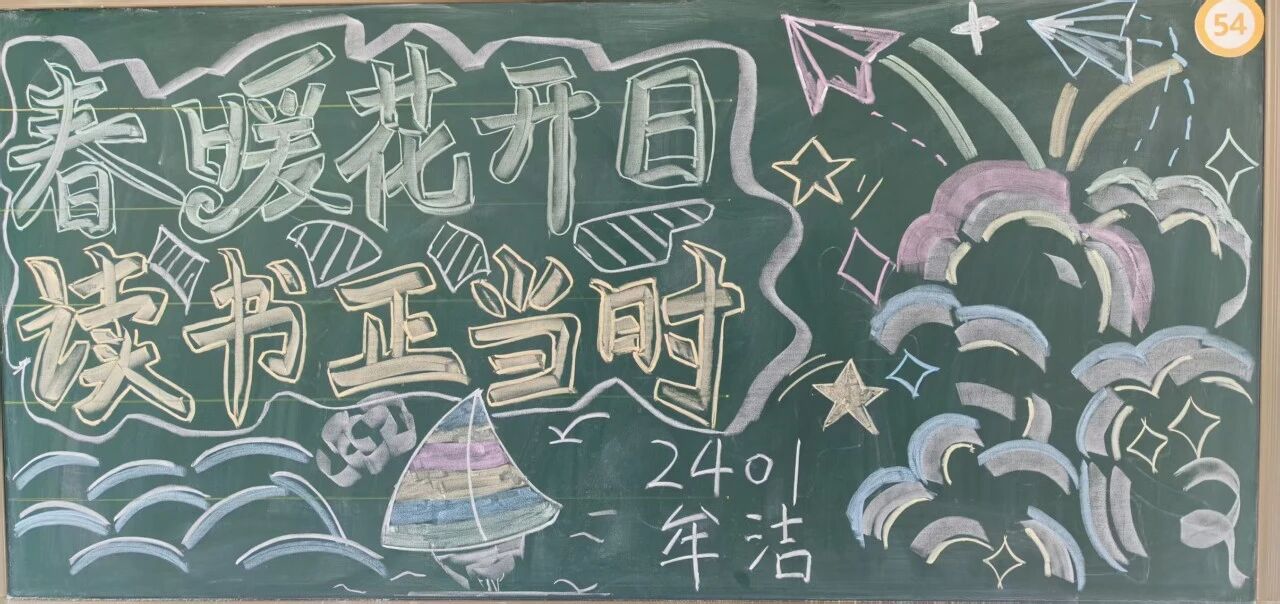 春暖花开日
读书正当时
2401
牟洁
54